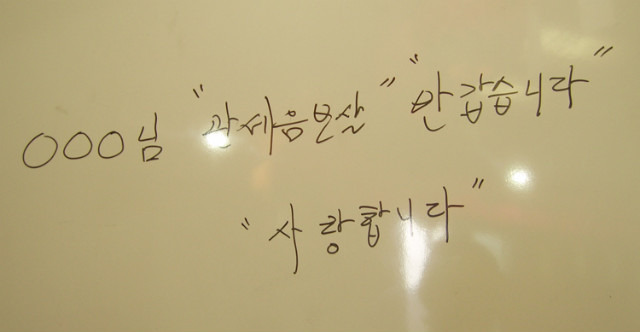 OOO님 "관세음보살" "반갑습니다"
"사랑합니다"